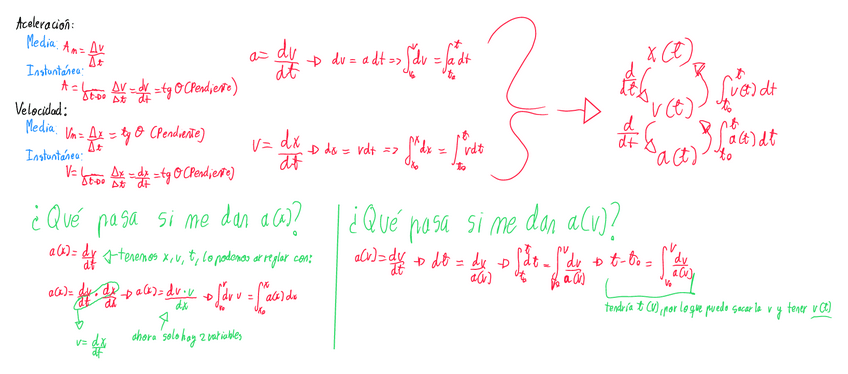 Aceleración:
Media: Am = Δv/Δt
Instantánea:
A = L Δt→0 Δv/Δt = dv/dt = tg θ (Pendiente)
Velocidad:
Media: Vm = Δx/Δt = tg θ (Pendiente)
Instantánea:
V = L Δt→0 Δx/Δt = dx/dt = tg θ (Pendiente)
a = dv/dt → dv = a dt => ∫_{v₀}^{v} dv = ∫_{t₀}^{t} a dt
V = dx/dt → dx = vdt => ∫_{x₀}^{x} dx = ∫_{t₀}^{t} v dt
x(t)
d/dt ∫_{t₀}^{t} v(t) dt
v(t)
d/dt ∫_{t₀}^{t} a(t) dt
a(t)
¿Qué pasa si me dan a(x)?
a(x) = dv/dt tenemos x, v, t, lo podemos arreglar con:
a(x) = dv/dt · dx/dx → a(x) = dv·v/dx → ∫_{v₀}^{v} dv v = ∫_{x₀}^{x} a(x) dx
v = dx/dt
ahora solo hay 2 variables
¿Qué pasa si me dan a(v)?
a(v) = dv/dt → dt = dv/a(v) → ∫_{t₀}^{t} dt = ∫_{v₀}^{v} dv/a(v) → t - t₀ = ∫_{v₀}^{v} dv/a(v)
tendría t(v), por lo que puedo sacar la v y tener v(t)